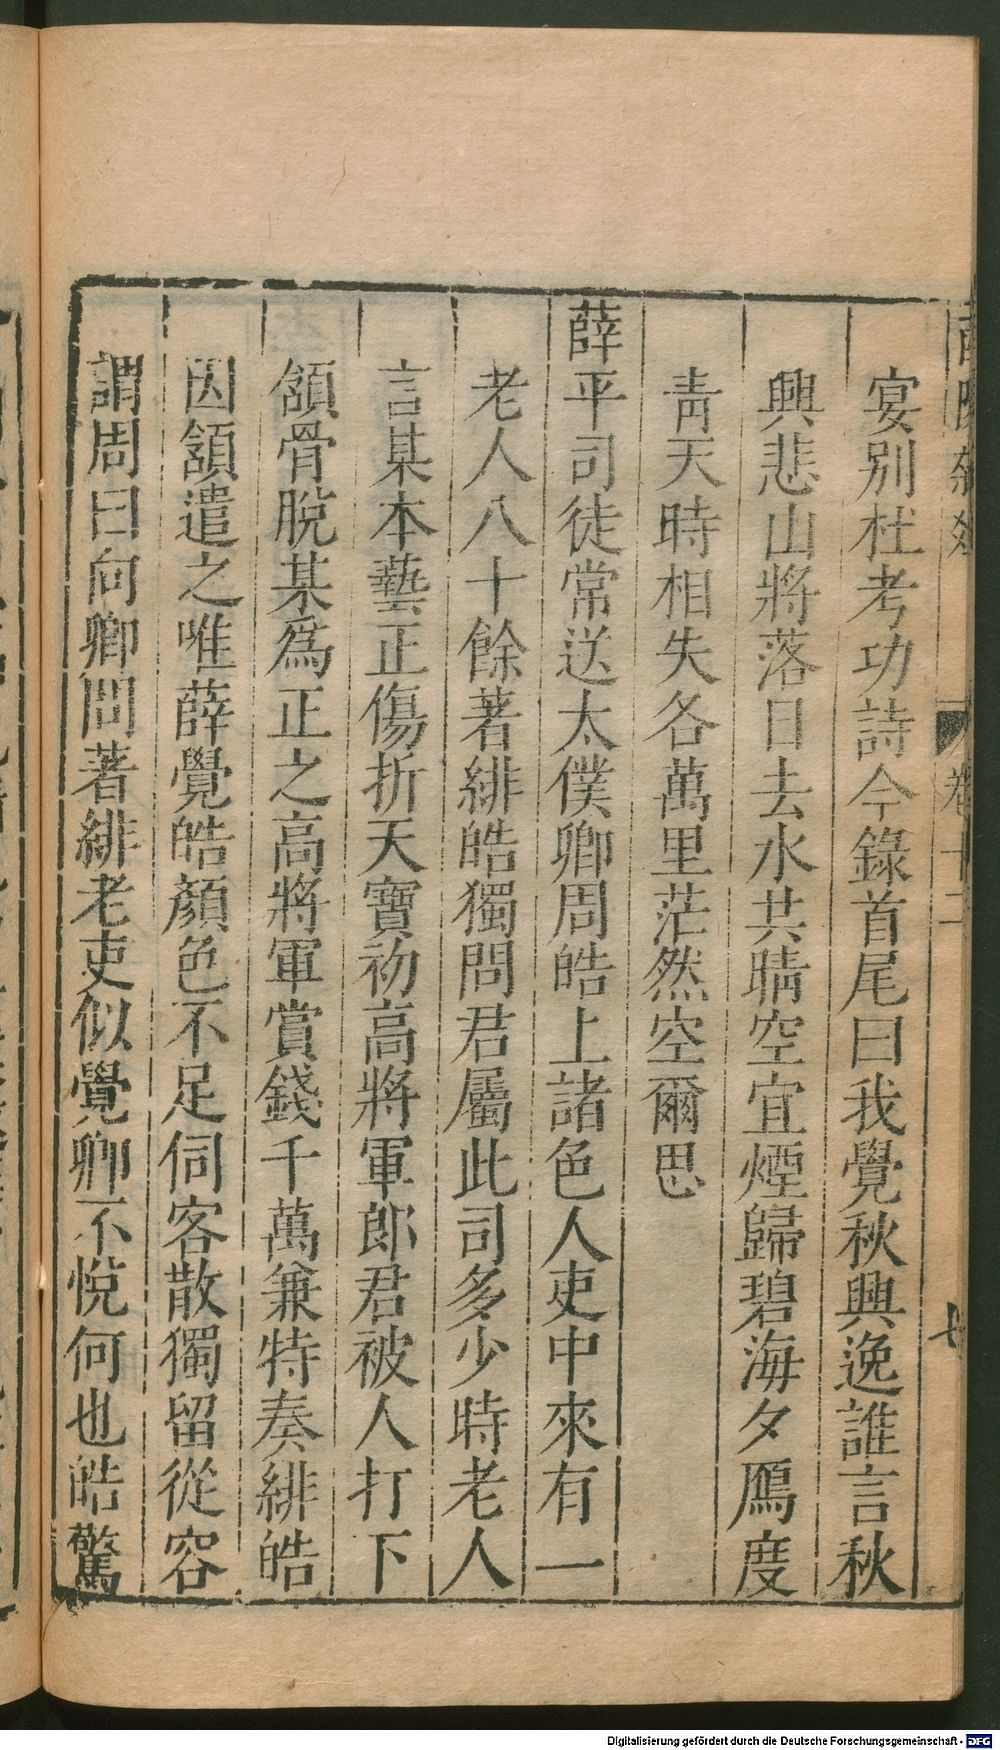 卷十二
宴別杜考功詩今錄首尾曰我覺秋興逸誰言秋
興悲山將落日去水共晴空宜煙歸碧海夕鴈度
青天時相失各萬里茫然空爾思
薛平司徒常送太僕卿周皓上諸色人吏中來有一
老人八十餘著緋皓獨問君屬此司多少時老人
言某本藝正傷折天寶初高將軍郎君被人打下
頷骨脫某爲正之高將軍賞錢千萬兼特奏緋皓
因頷遣之唯薛覺皓顏色不足伺客散獨留從容
謂周曰向卿問著緋老吏似覺卿不悅何也皓驚
Digitalisierung gefördert durch die Deutsche Forschungsgemeinschaft - DFG